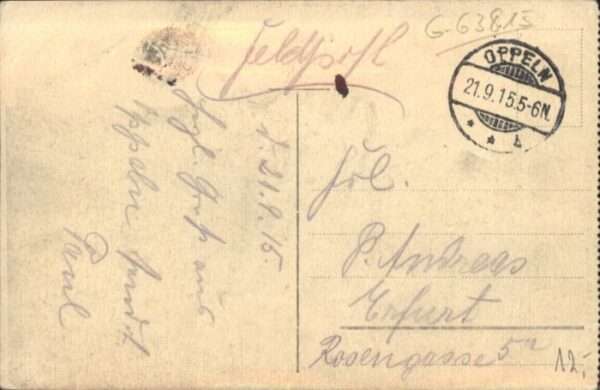 G-63815
Feldpost
OPPELN
21.9.15.5-6N.
* * b
d. 21.9.15.
Hrzl. Gruß aus
Oppeln sendet
Paul
Frl.
P. Andreas
Erfurt
Rosengasse 5a
12,-